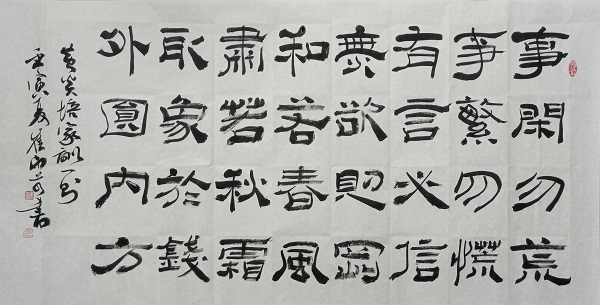 事閑勿荒
事繁勿慌
有言必信
無欲則剛
和若春風
肅若秋霜
取象於錢
外圓內方
黄炎培家訓一則
壬寅夏崔書